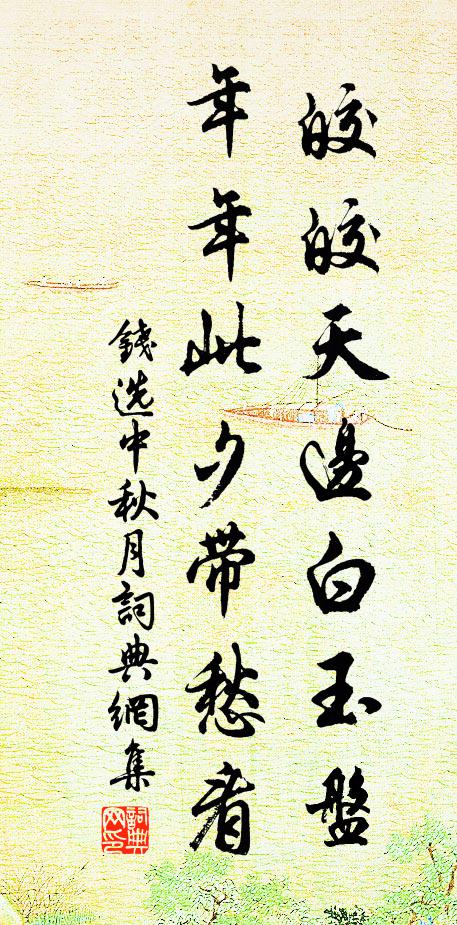 皎皎天邊白玉盤
年年此夕帶愁看
錢选中秋月詞典網集
詞典网印